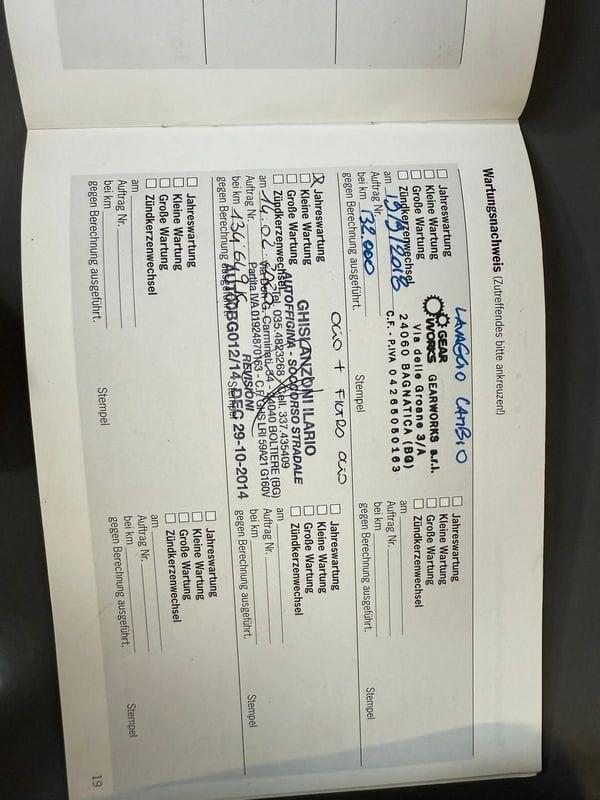 Wartungsnachweis (Zutreffendes bitte ankreuzen!)
LAVAGGIO CAMBIO
Jahreswartung
Kleine Wartung
Große Wartung
Zündkerzenwechsel
am 19/9/2018
Auftrag Nr.
bei km 132.000
gegen Berechnung ausgeführt.
GEAR WORKS
GEARWORKS s.r.l.
Via delle Groane 3/A
24060 BAGNATICA (BG)
C.F. - P.IVA 04265050163
Stempel
Jahreswartung
Kleine Wartung
Große Wartung
Zündkerzenwechsel
am
Auftrag Nr.
bei km
gegen Berechnung ausgeführt.
Stempel
OLIO + FILTRO OLIO
X Jahreswartung
Kleine Wartung
Große Wartung
Zündkerzenwechsel
am 14.02
Auftrag Nr.
bei km
gegen Berechnung
GHISLANZONI ILARIO
AUTOFFICINA - SOCCORSO STRADALE
Tel. 035.4823268 - Cell. 337.435409
Carminati, 34 - 24040 BOLTIERE (BG)
Partita IVA 01924870163 - C.F.
REVISIONI
AUT00BG012/14 DEL 29-10-2014
Stempel
Jahreswartung
Kleine Wartung
Große Wartung
Zündkerzenwechsel
am
Auftrag Nr.
bei km
gegen Berechnung ausgeführt.
Stempel
Jahreswartung
Kleine Wartung
Große Wartung
Zündkerzenwechsel
am
Auftrag Nr.
bei km
gegen Berechnung ausgeführt.
Stempel
Jahreswartung
Kleine Wartung
Große Wartung
Zündkerzenwechsel
am
Auftrag Nr.
bei km
gegen Berechnung ausgeführt.
Stempel
19